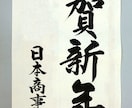 賀新年
日本商事